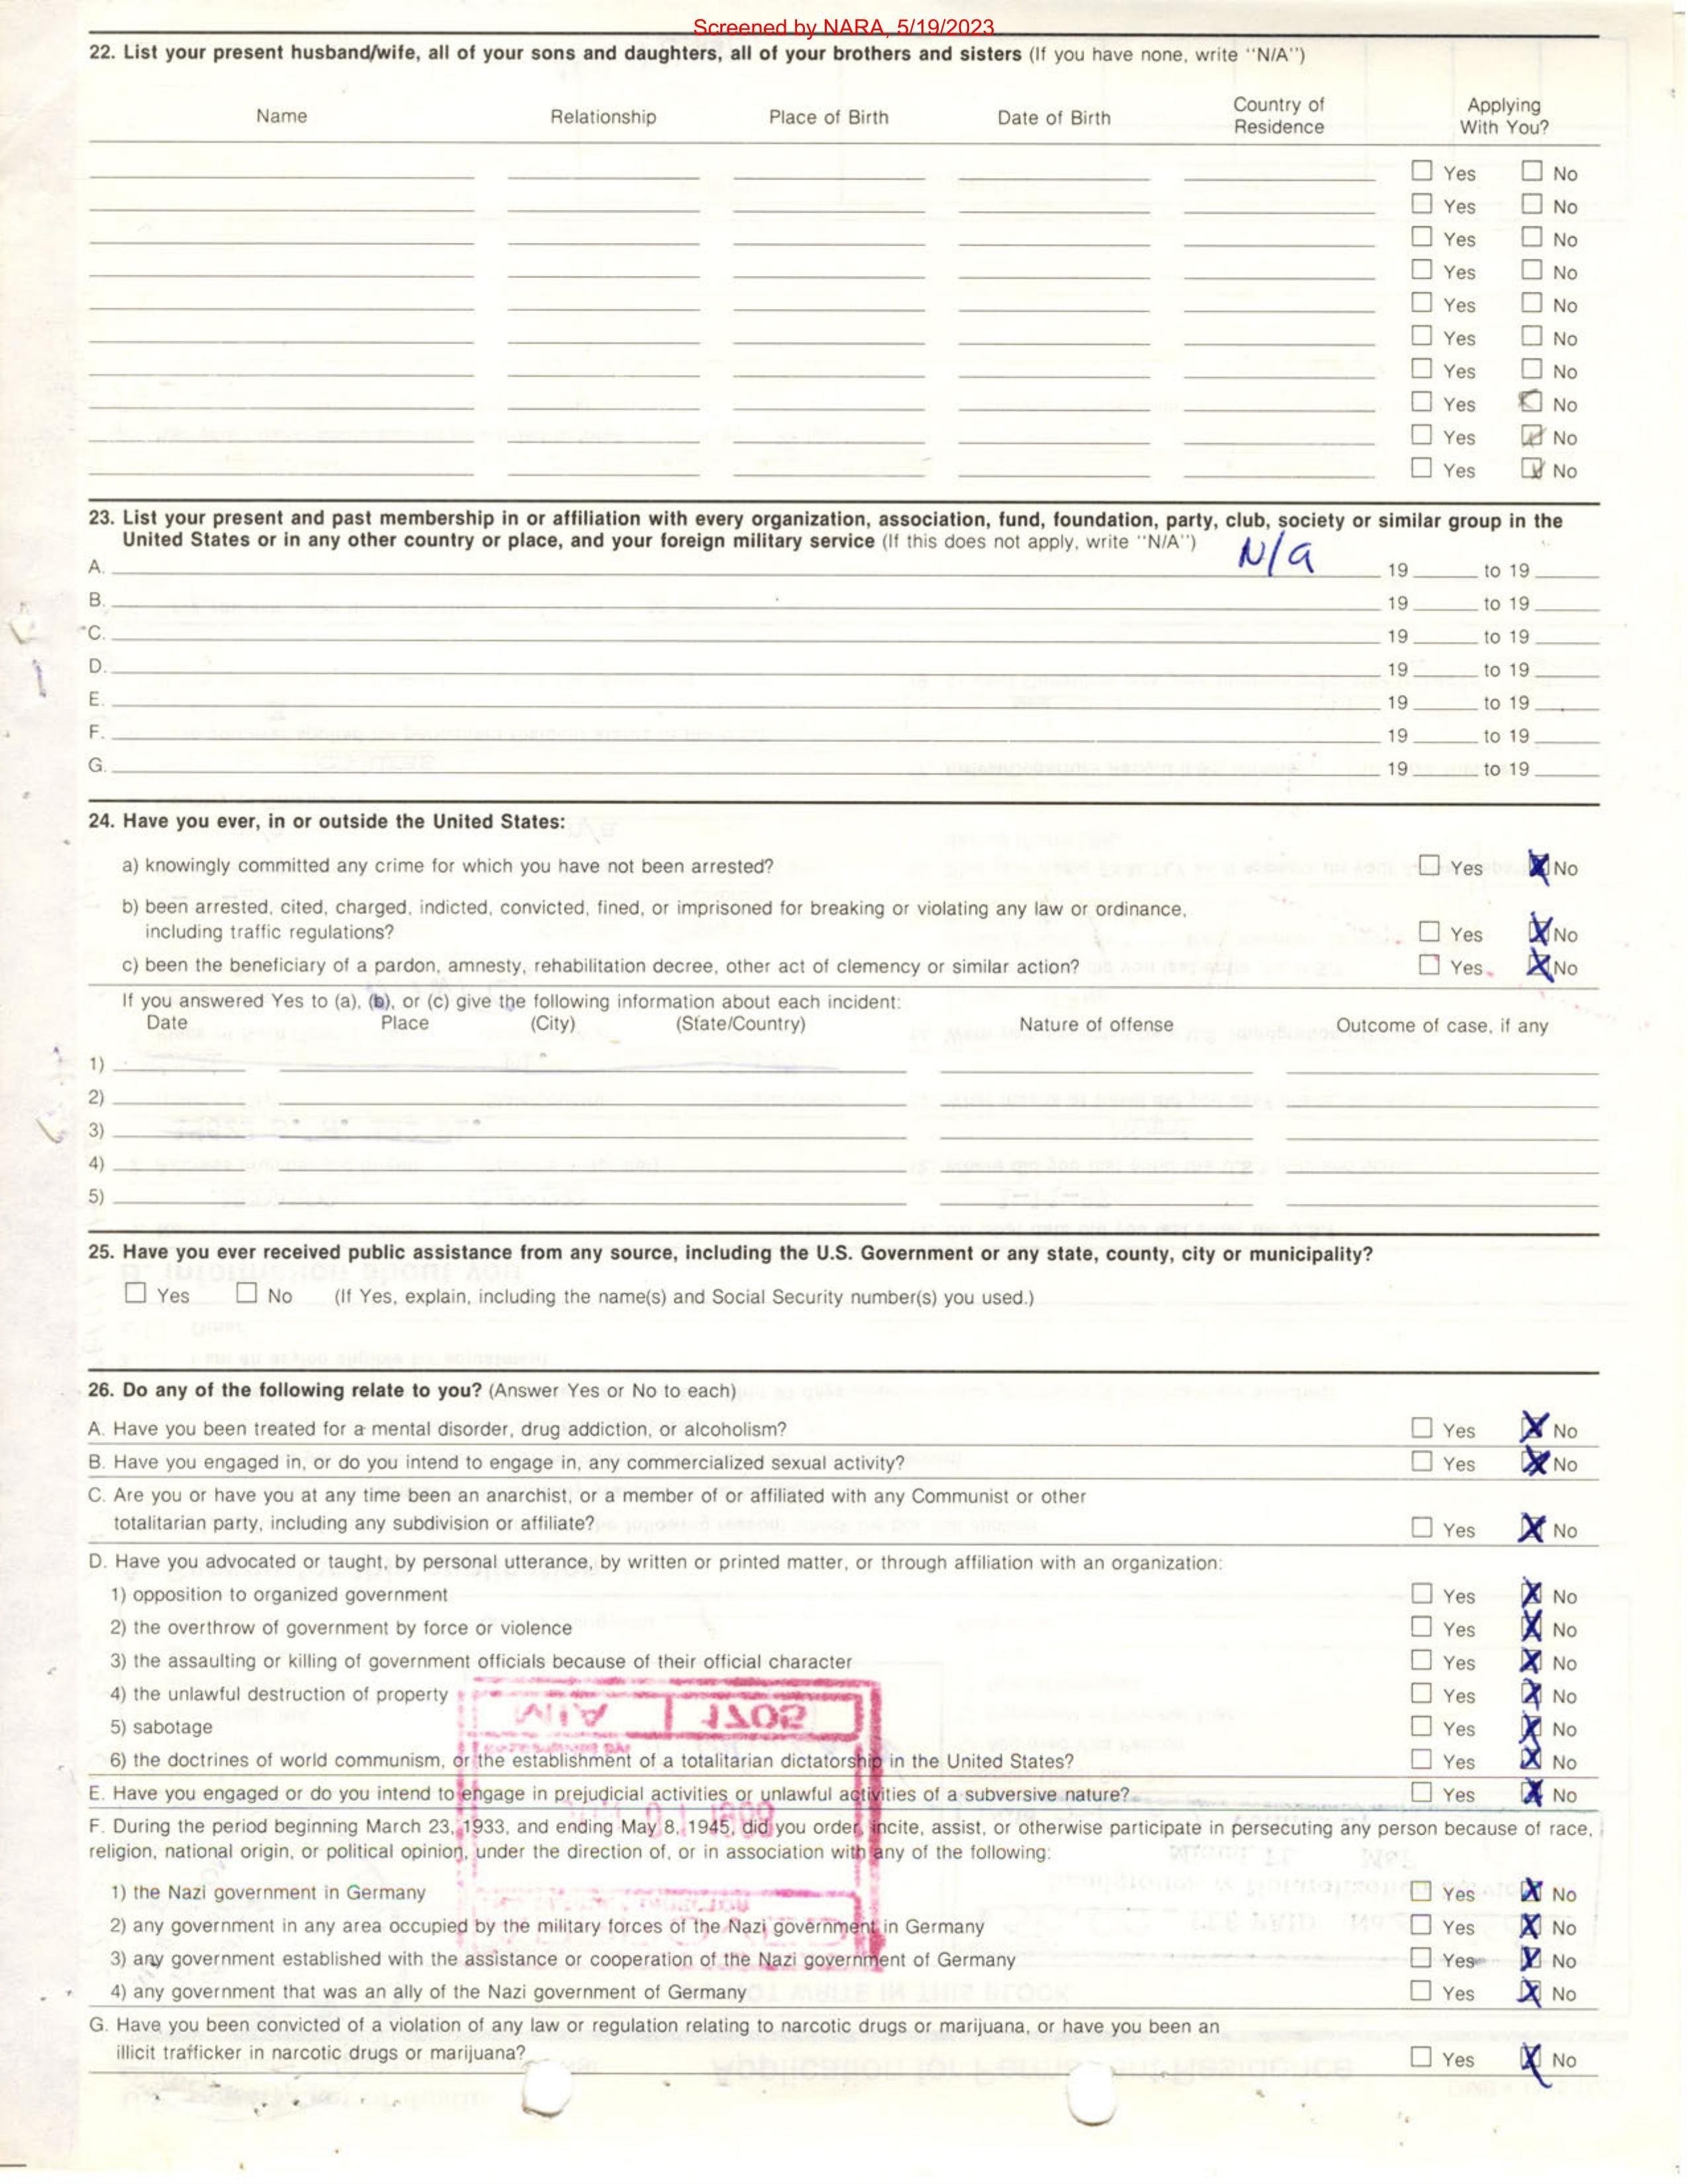 Screened by NARA, 5/19/2023
22. List your present husband/wife, all of your sons and daughters, all of your brothers and sisters (If you have none, write "N/A")
Name Relationship Place of Birth Date of Birth Country of Residence Applying With You?
☐ Yes ☐ No
☐ Yes ☐ No
☐ Yes ☐ No
☐ Yes ☐ No
☐ Yes ☐ No
☐ Yes ☐ No
☐ Yes ☐ No
☐ Yes ☒ No
☐ Yes ☒ No
☐ Yes ☒ No
23. List your present and past membership in or affiliation with every organization, association, fund, foundation, party, club, society or similar group in the
United States or in any other country or place, and your foreign military service (If this does not apply, write "N/A")
A. N/a 19 to 19
B. 19 to 19
C. 19 to 19
D. 19 to 19
E. 19 to 19
F. 19 to 19
G. 19 to 19
24. Have you ever, in or outside the United States:
a) knowingly committed any crime for which you have not been arrested? ☐ Yes ☒ No
b) been arrested, cited, charged, indicted, convicted, fined, or imprisoned for breaking or violating any law or ordinance,
including traffic regulations? ☐ Yes ☒ No
c) been the beneficiary of a pardon, amnesty, rehabilitation decree, other act of clemency or similar action? ☐ Yes ☒ No
If you answered Yes to (a), (b), or (c) give the following information about each incident:
Date Place (City) (State/Country) Nature of offense Outcome of case, if any
1)
2)
3)
4)
5)
25. Have you ever received public assistance from any source, including the U.S. Government or any state, county, city or municipality?
☐ Yes ☐ No (If Yes, explain, including the name(s) and Social Security number(s) you used.)
26. Do any of the following relate to you? (Answer Yes or No to each)
A. Have you been treated for a mental disorder, drug addiction, or alcoholism? ☐ Yes ☒ No
B. Have you engaged in, or do you intend to engage in, any commercialized sexual activity? ☐ Yes ☒ No
C. Are you or have you at any time been an anarchist, or a member of or affiliated with any Communist or other
totalitarian party, including any subdivision or affiliate? ☐ Yes ☒ No
D. Have you advocated or taught, by personal utterance, by written or printed matter, or through affiliation with an organization:
1) opposition to organized government ☐ Yes ☒ No
2) the overthrow of government by force or violence ☐ Yes ☒ No
3) the assaulting or killing of government officials because of their official character ☐ Yes ☒ No
4) the unlawful destruction of property ☐ Yes ☒ No
5) sabotage ☐ Yes ☒ No
6) the doctrines of world communism, or the establishment of a totalitarian dictatorship in the United States? ☐ Yes ☒ No
E. Have you engaged or do you intend to engage in prejudicial activities or unlawful activities of a subversive nature? ☐ Yes ☒ No
F. During the period beginning March 23, 1933, and ending May 8, 1945, did you order, incite, assist, or otherwise participate in persecuting any person because of race,
religion, national origin, or political opinion, under the direction of, or in association with any of the following:
1) the Nazi government in Germany ☐ Yes ☒ No
2) any government in any area occupied by the military forces of the Nazi government in Germany ☐ Yes ☒ No
3) any government established with the assistance or cooperation of the Nazi government of Germany ☐ Yes ☒ No
4) any government that was an ally of the Nazi government of Germany ☐ Yes ☒ No
G. Have you been convicted of a violation of any law or regulation relating to narcotic drugs or marijuana, or have you been an
illicit trafficker in narcotic drugs or marijuana? ☐ Yes ☒ No
MIA 1705